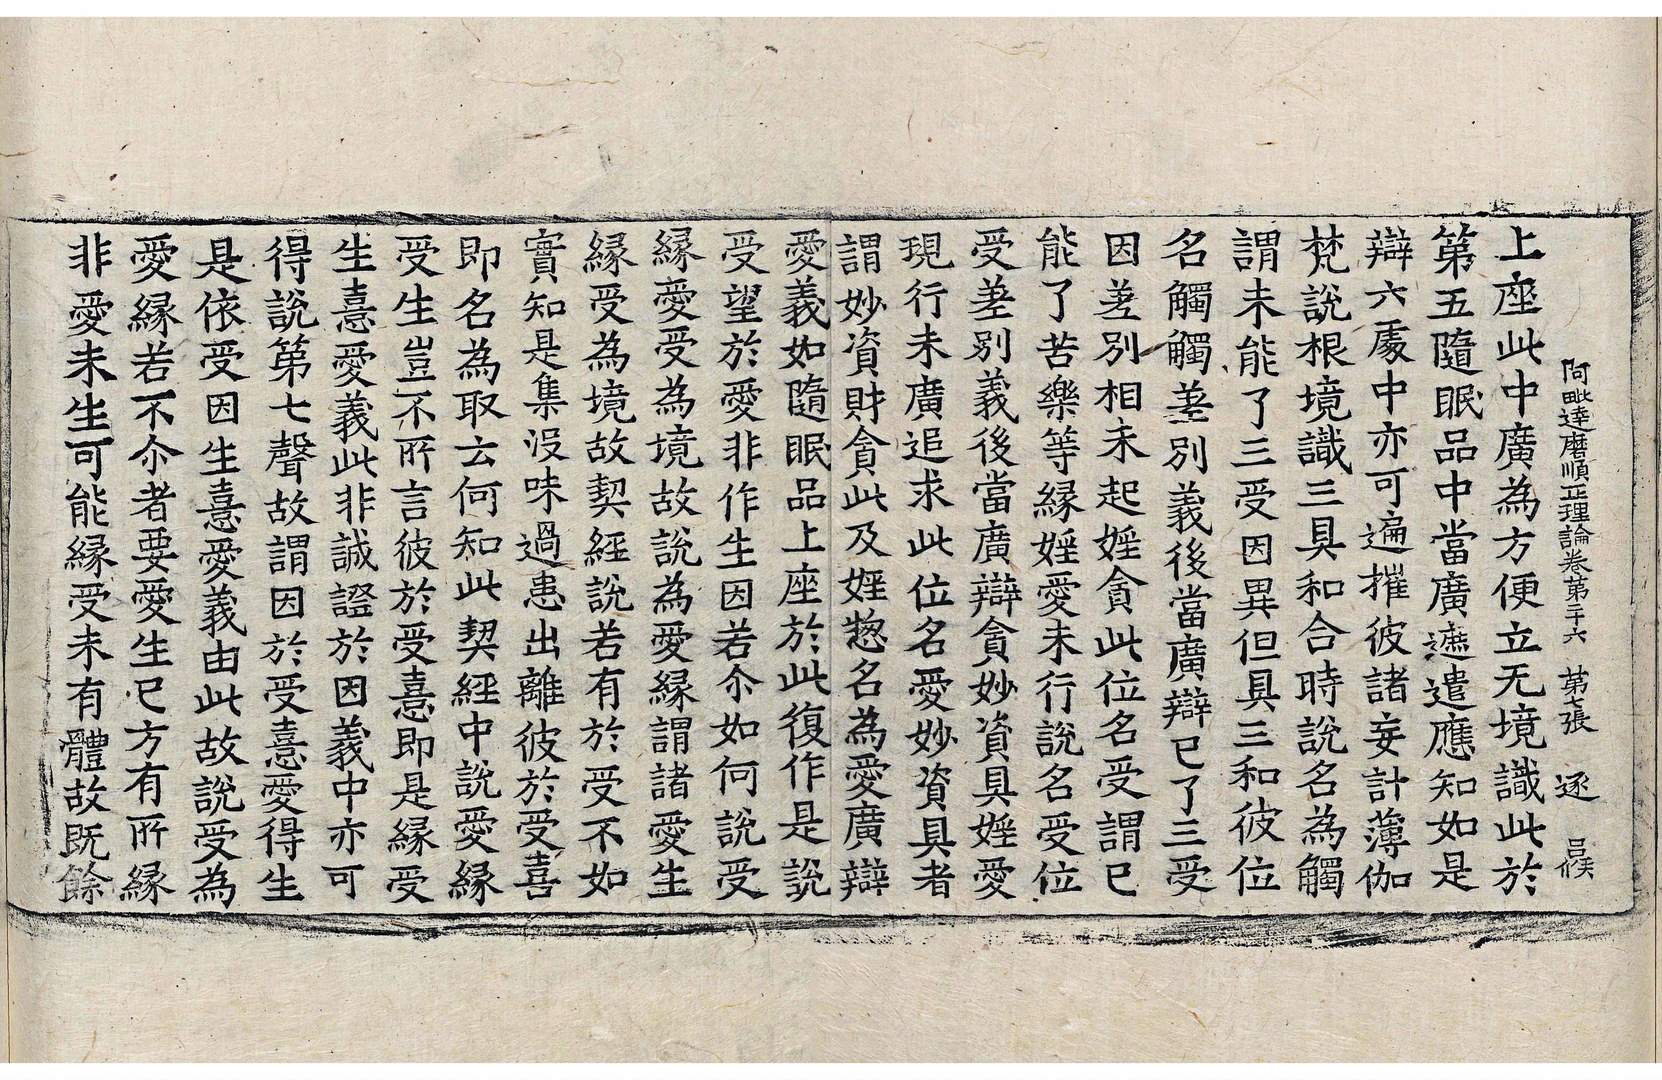 阿毗達磨順正理論卷第二十六 第七張 逐 呂侯
上座此中廣為方便立无境識此於
第五隨眠品中當廣遮遣應知如是
辯六處中亦可遍摧彼諸妄計薄伽
梵說根境識三具和合時說名為觸
謂未能了三受因異但具三和彼位
名觸觸差別義後當廣辯已了三受
因差別相未起婬貪此位名受謂已
能了苦樂等緣婬愛未行說名受位
受差別義後當廣辯貪妙資具婬愛
現行未廣追求此位名愛妙資具者
謂妙資財貪此及婬惣名為愛廣辯
愛義如隨眠品上座於此復作是說
受望於愛非作生因若尒如何說受
緣愛受為境故說為愛緣謂諸愛生
緣受為境故契經說若有於受不如
實知是集沒味過患出離彼於受喜
即名為取云何知此契經中說愛緣
受生豈不所言彼於受憙即是緣受
生憙愛義此非誠證於因義中亦可
得說第七聲故謂因於受憙愛得生
是依受因生憙愛義由此故說受為
愛緣若不尒者要愛生已方有所緣
非愛未生可能緣受未有體故既餘